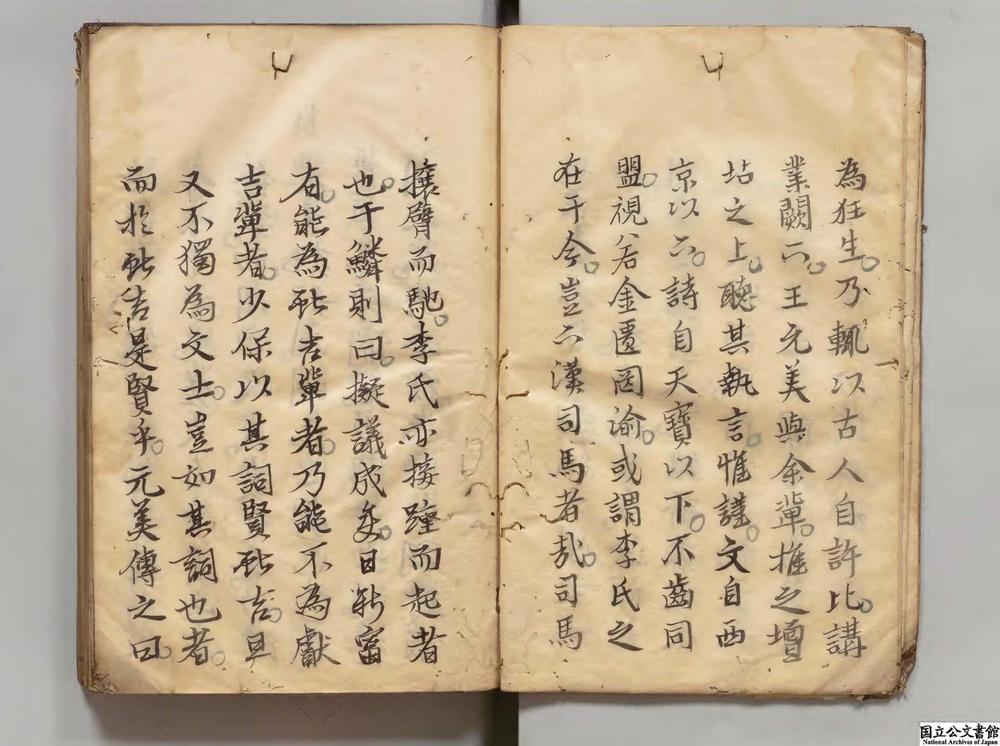 為狂生。乃輒以古人自許比。講
業闕下。王元美與余輩。推之壇
坫之上。聽其執言惟謹。文自西
京以下。詩自天寶以下。不齒同
盟。視若金匱罔渝。或謂李氏之
在于今。豈下漢司馬者哉。司馬
攘臂而馳。李氏亦接踵而起者
也。于鱗則曰。擬議成矣。日新富
有。能為獻吉輩者。乃能不為獻
吉輩者。少保以其詞賢獻吉。且
又不獨為文士。豈如其詞也者。
而於獻吉是賢乎。元美傳之曰。
国立公文書館
National Archives of Japan